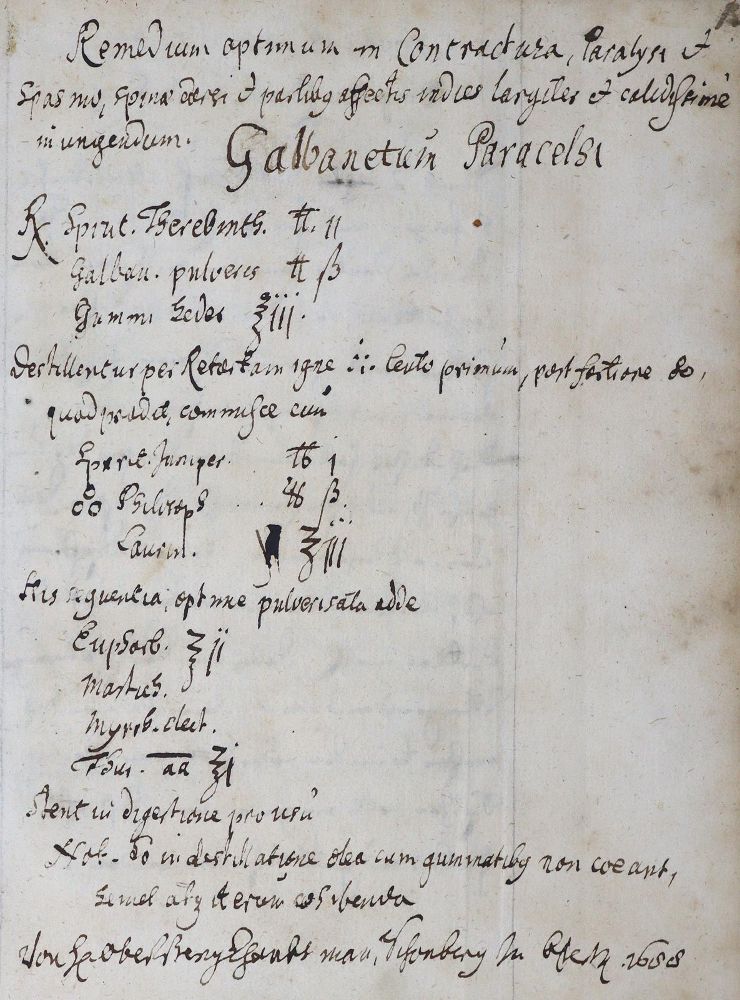 Remedium optimum in Contractura, Paralysi et
Spasmo, spinæ dorsi et partibq affectis indies largiter et calidissimè
inungendum.
Galbanetum Paracelsi
℞. Spirit. Therebinth. ℔. ij
Galban. pulveris ℔ ß
Gummi heder ℥iij.
Destillentur per Retortam igne lento primùm, post fortiore
quod prodit, commisce cum
Spirit. Juniper. ℔ j
Philosoph ℔ ß.
Laurin. ℥iij
His sequentia, optime pulverisata adde
Euphorb. ℥ij
Mastich.
Myrrh. elect.
Thur. aa ℥j
Stent in digestione pro usu
Not. in destillatione olea cum gummatibq non coeant,
semel atq iterum cohibenda
Von 1688